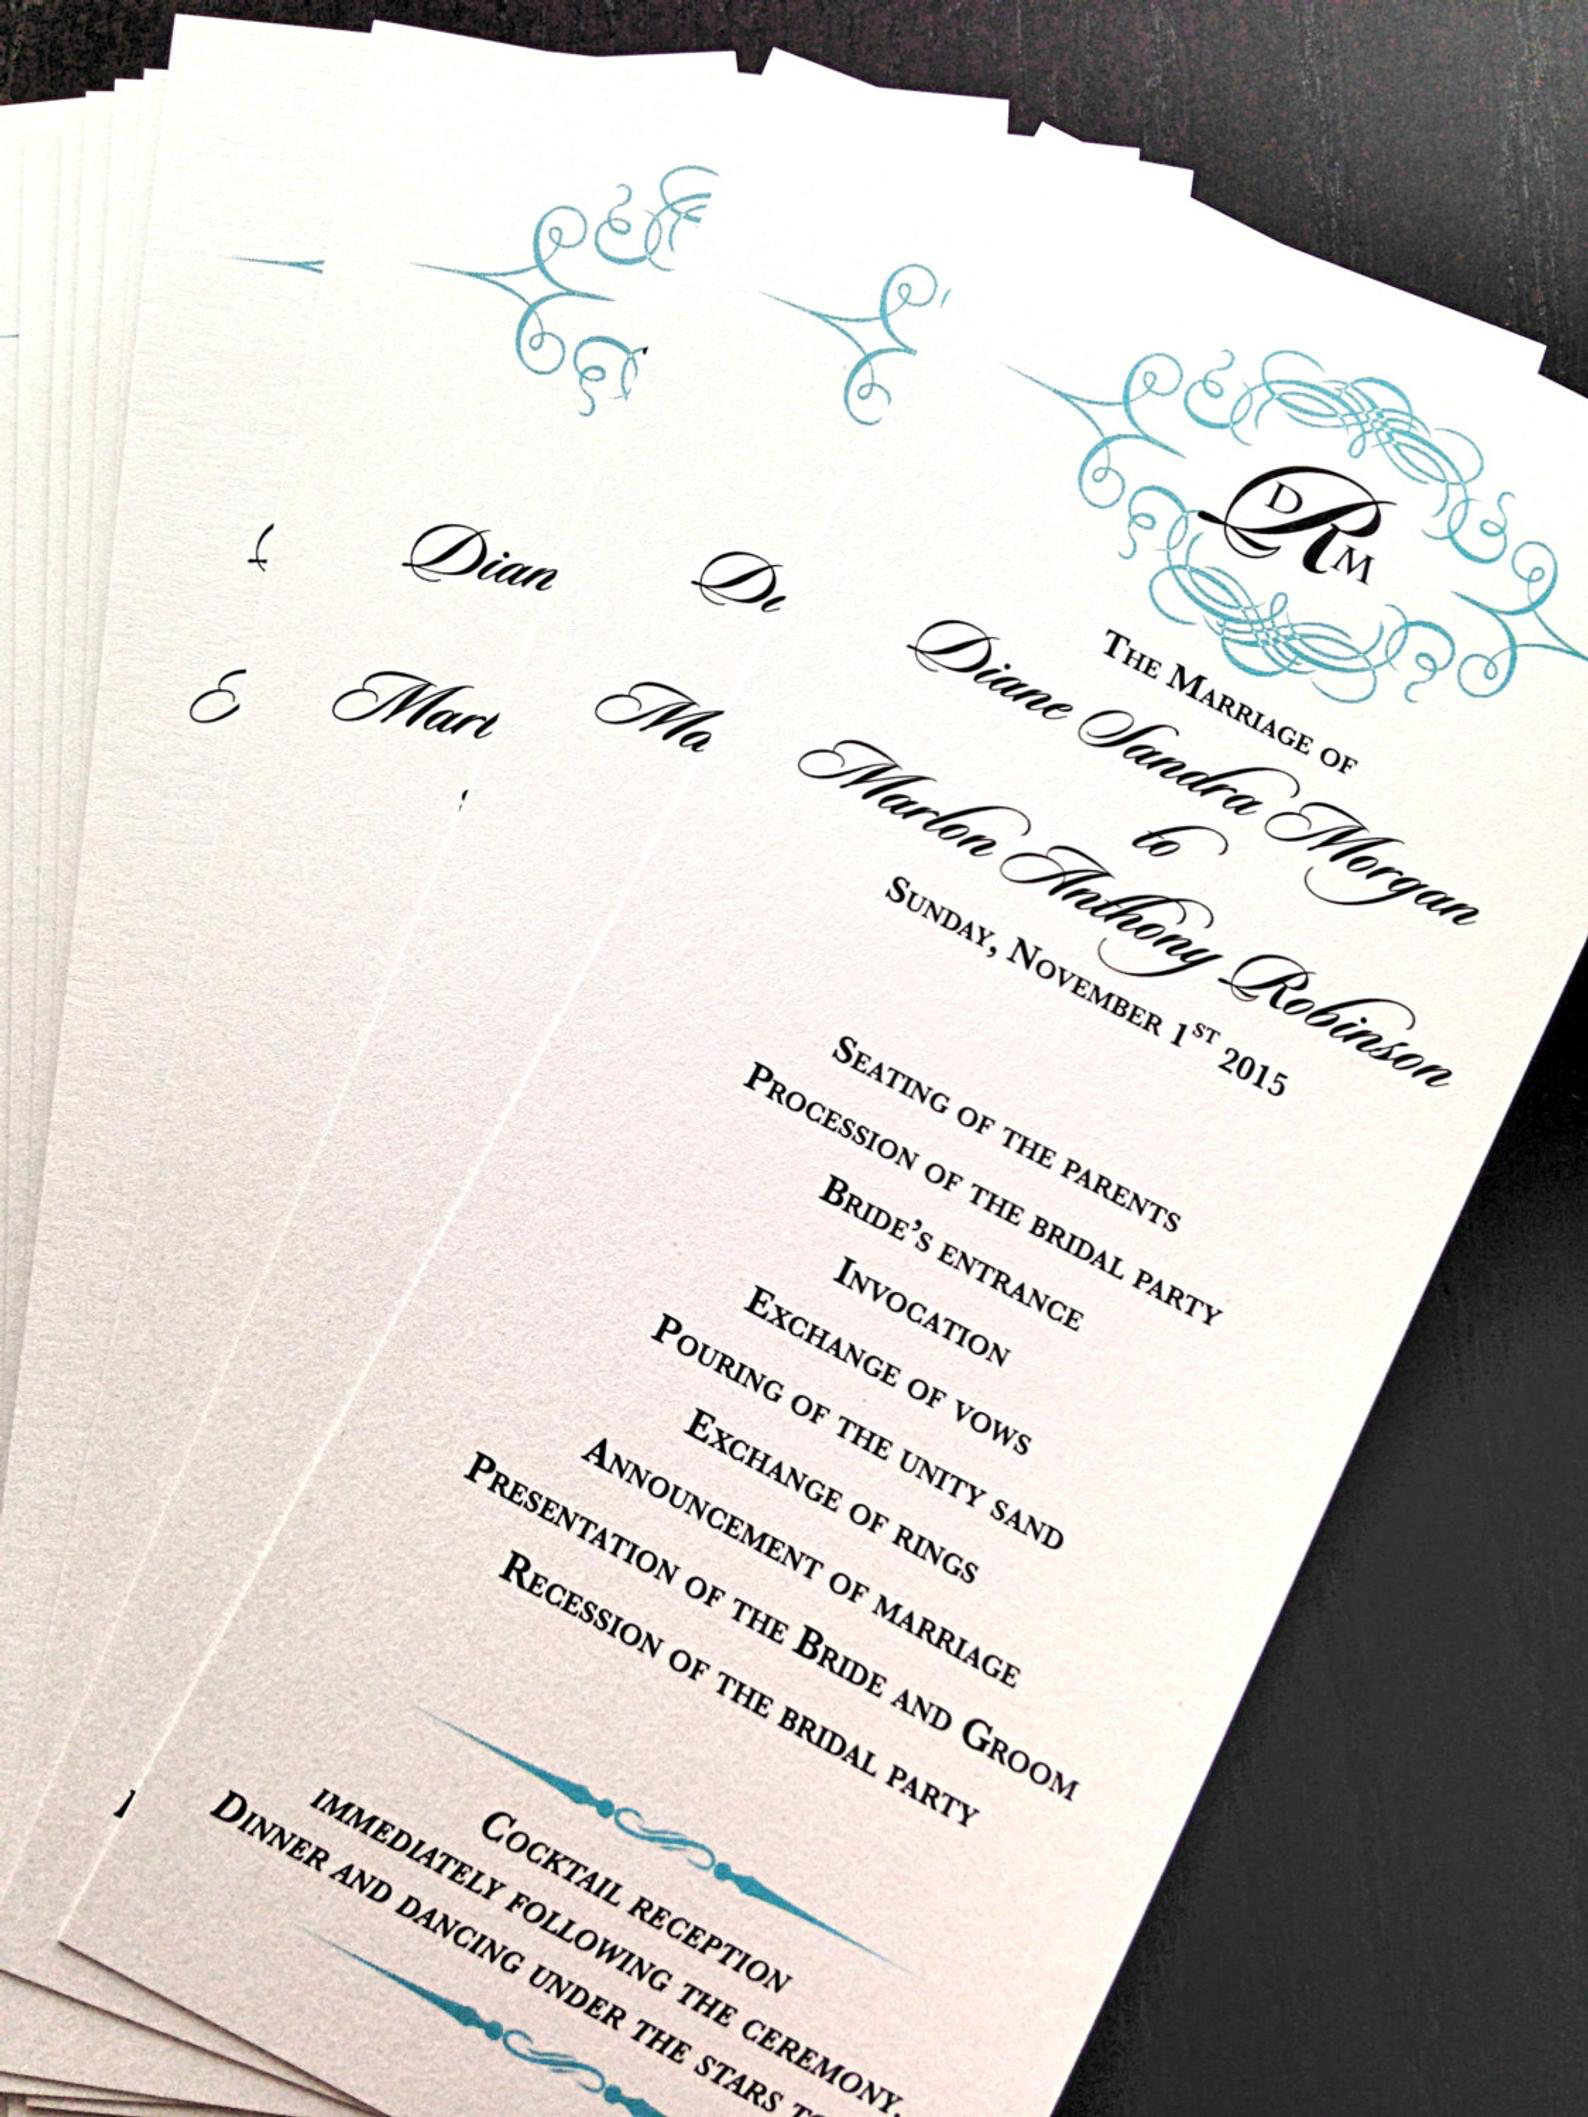 Dian
Mart
D R M
The Marriage of
Diane Sandra Morgan
to
Marlon Anthony Robinson
Sunday, November 1st 2015
Seating of the parents
Procession of the bridal party
Bride's entrance
Invocation
Exchange of vows
Pouring of the unity sand
Exchange of rings
Announcement of marriage
Presentation of the Bride and Groom
Recession of the bridal party
Cocktail reception
immediately following the ceremony.
Dinner and dancing under the stars